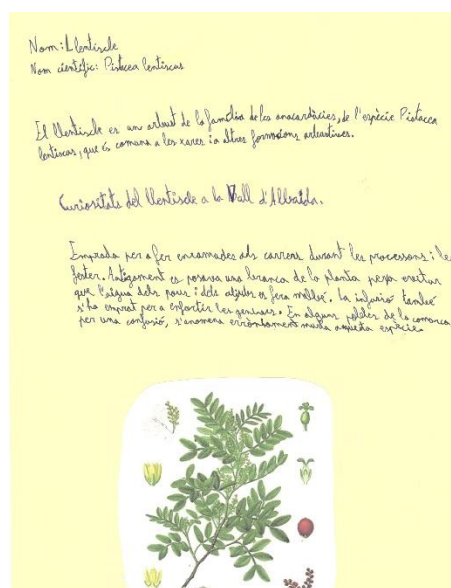 Nom: Llentiscle
Nom científic: Pistacea lentiscus
El llentiscle es un arbust de la família de les anacardiàcies, de l'espècie Pistacea
lentiscus, que és comuna a les xares i a altres formacions arbustives.
Curiositats del llentiscle a la Vall d'Albaida.
Emprada per a fer enramades als carrers durant les processons i les
festes. Antigament es posava una branca de la planta per a evitar
que l'aigua dels pous i dels aljubs es fera malbé. La infusió també
s'ha emprat per a enfortir les genives. En alguns pobles de la comarca
per una confusió, s'anomena erròniament murta aquesta espècie.